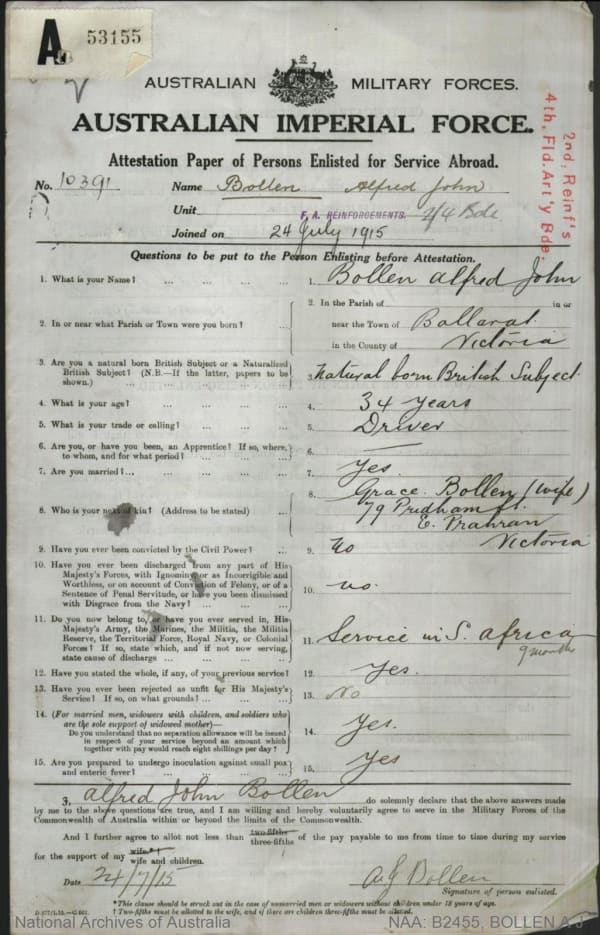 A 53155
AUSTRALIAN MILITARY FORCES.
AUSTRALIAN IMPERIAL FORCE.
Attestation Paper of Persons Enlisted for Service Abroad.
2nd. Reinf's
4th. Fld. Art'y Bde.
No. 10391 Name Bollen Alfred John
Unit F. A. REINFORCEMENTS. 2/4 Bde
Joined on 24 July 1915
Questions to be put to the Person Enlisting before Attestation.
1. What is your Name? ... 1. Bollen Alfred John
2. In or near what Parish or Town were you born? ...
2. In the Parish of in or
near the Town of Ballarat
in the County of Victoria
3. Are you a natural born British Subject or a Naturalized
British Subject? (N.B.—If the latter, papers to be
shown.) ... 3. Natural born British Subject
4. What is your age? ... 4. 34 years
5. What is your trade or calling? ... 5. Driver
6. Are you, or have you been, an Apprentice? If so, where,
to whom, and for what period? ... 6. —
7. Are you married? ... 7. Yes.
8. Who is your next of kin? (Address to be stated) ...
8. Grace Bollen (wife)
79 Pridham St.
E. Prahran
Victoria
9. Have you ever been convicted by the Civil Power? ... 9. No
10. Have you ever been discharged from any part of His
Majesty's Forces, with Ignominy, or as Incorrigible and
Worthless, or on account of Conviction of Felony, or of a
Sentence of Penal Servitude, or have you been dismissed
with Disgrace from the Navy? ... 10. no.
11. Do you now belong to, or have you ever served in, His
Majesty's Army, the Marines, the Militia, the Militia
Reserve, the Territorial Force, Royal Navy, or Colonial
Forces? If so, state which, and if not now serving,
state cause of discharge ... 11. Service in S. Africa
9 months
12. Have you stated the whole, if any, of your previous service? 12. Yes.
13. Have you ever been rejected as unfit for His Majesty's
Service? If so, on what grounds? ... 13. No
14. (For married men, widowers with children, and soldiers who
are the sole support of widowed mother)—
Do you understand that no separation allowance will be issued
in respect of your service beyond an amount which
together with pay would reach eight shillings per day? 14. Yes.
15. Are you prepared to undergo inoculation against small pox
and enteric fever? ... 15. Yes
I, Alfred John Bollen do solemnly declare that the above answers made
by me to the above questions are true, and I am willing and hereby voluntarily agree to serve in the Military Forces of the
Commonwealth of Australia within or beyond the limits of the Commonwealth.
And I further agree to allot not less than two-fifths
three-fifths of the pay payable to me from time to time during my service
for the support of my wife
wife and children.
Date 24/7/15 A J Bollen
Signature of person enlisted.
* This clause should be struck out in the case of unmarried men or widowers without children under 18 years of age.
† Two-fifths must be allotted to the wife, and if there are children three-fifths must be allotted.
National Archives of Australia NAA: B2455, BOLLEN A J